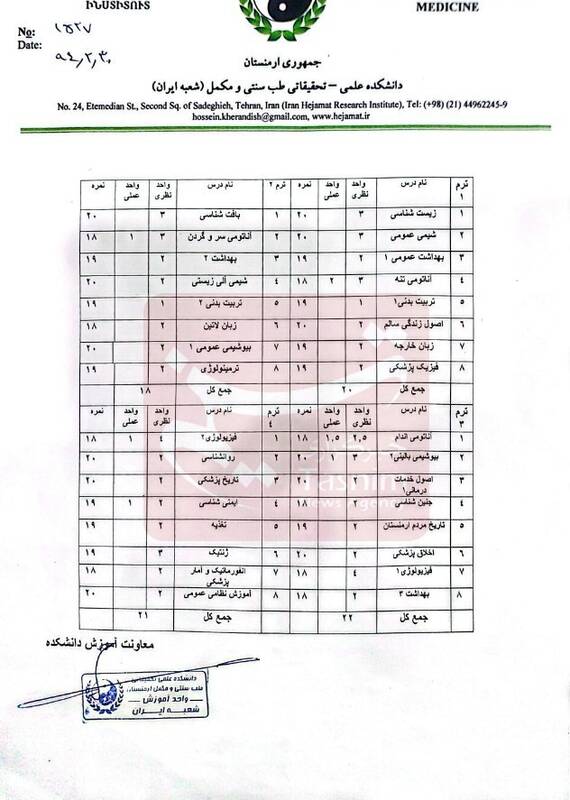 ԻՆՍՏԻՏՈՒՏ
MEDICINE
No: ۱۵۲۷
Date: ۹۴,۲,۳۰
جمهوری ارمنستان
دانشکده علمی – تحقیقاتی طب سنتی و مکمل (شعبه ایران)
No. 24, Etemedian St., Second Sq. of Sadeghieh, Tehran, Iran (Iran Hejamat Research Institute), Tel: (+98) (21) 44962245-9
hossein.kherandish@gmail.com, www.hejamat.ir
ترم ۱ نام درس واحد نظری واحد عملی نمره ترم ۲ نام درس واحد نظری واحد عملی نمره
۱ زیست شناسی ۳ ۲۰ ۱ بافت شناسی ۳ ۲۰
۲ شیمی عمومی ۳ ۲۰ ۲ آناتومی سر و گردن ۳ ۱ ۱۸
۳ بهداشت عمومی ۱ ۲ ۱۹ ۳ بهداشت ۲ ۲ ۱۹
۴ آناتومی تنه ۳ ۲ ۱۸ ۴ شیمی آلی زیستی ۲ ۲۰
۵ تربیت بدنی۱ ۱ ۱۹ ۵ تربیت بدنی ۲ ۱ ۱۹
۶ اصول زندگی سالم ۲ ۲۰ ۶ زبان لاتین ۲ ۱۸
۷ زبان خارجه ۲ ۱۹ ۷ بیوشیمی عمومی ۱ ۲ ۲۰
۸ فیزیک پزشکی ۲ ۱۹ ۸ ترمینولوژی ۲ ۱۹
جمع کل ۲۰ جمع کل ۱۸
ترم ۳ نام درس واحد نظری واحد عملی نمره ترم ۴ نام درس واحد نظری واحد عملی نمره
۱ آناتومی اندام ۲,۵ ۱,۵ ۱۸ ۱ فیزیولوژی۲ ۴ ۱ ۱۸
۲ بیوشیمی بالینی۲ ۳ ۱ ۲۰ ۲ روانشناسی ۲ ۲۰
۳ اصول خدمات درمانی۱ ۲ ۲۰ ۳ تاریخ پزشکی ۲ ۲۰
۴ جنین شناسی ۲ ۱۸ ۴ ایمنی شناسی ۲ ۱ ۱۹
۵ تاریخ مردم ارمنستان ۲ ۱۹ ۵ تغذیه ۲ ۱۹
۶ اخلاق پزشکی ۲ ۲۰ ۶ ژنتیک ۳ ۱۹
۷ فیزیولوژی۱ ۴ ۱۸ ۷ انفورماتیک و آمار پزشکی ۲ ۱۸
۸ بهداشت ۳ ۲ ۱۹ ۸ آموزش نظامی عمومی ۲ ۲۰
جمع کل ۲۲ جمع کل ۲۱
Tasnim
News Agency
معاونت آموزش دانشکده
دانشکده علمی تحقیقاتی
طب سنتی و مکمل ارمنستان
واحد آموزش
شعبه ایران